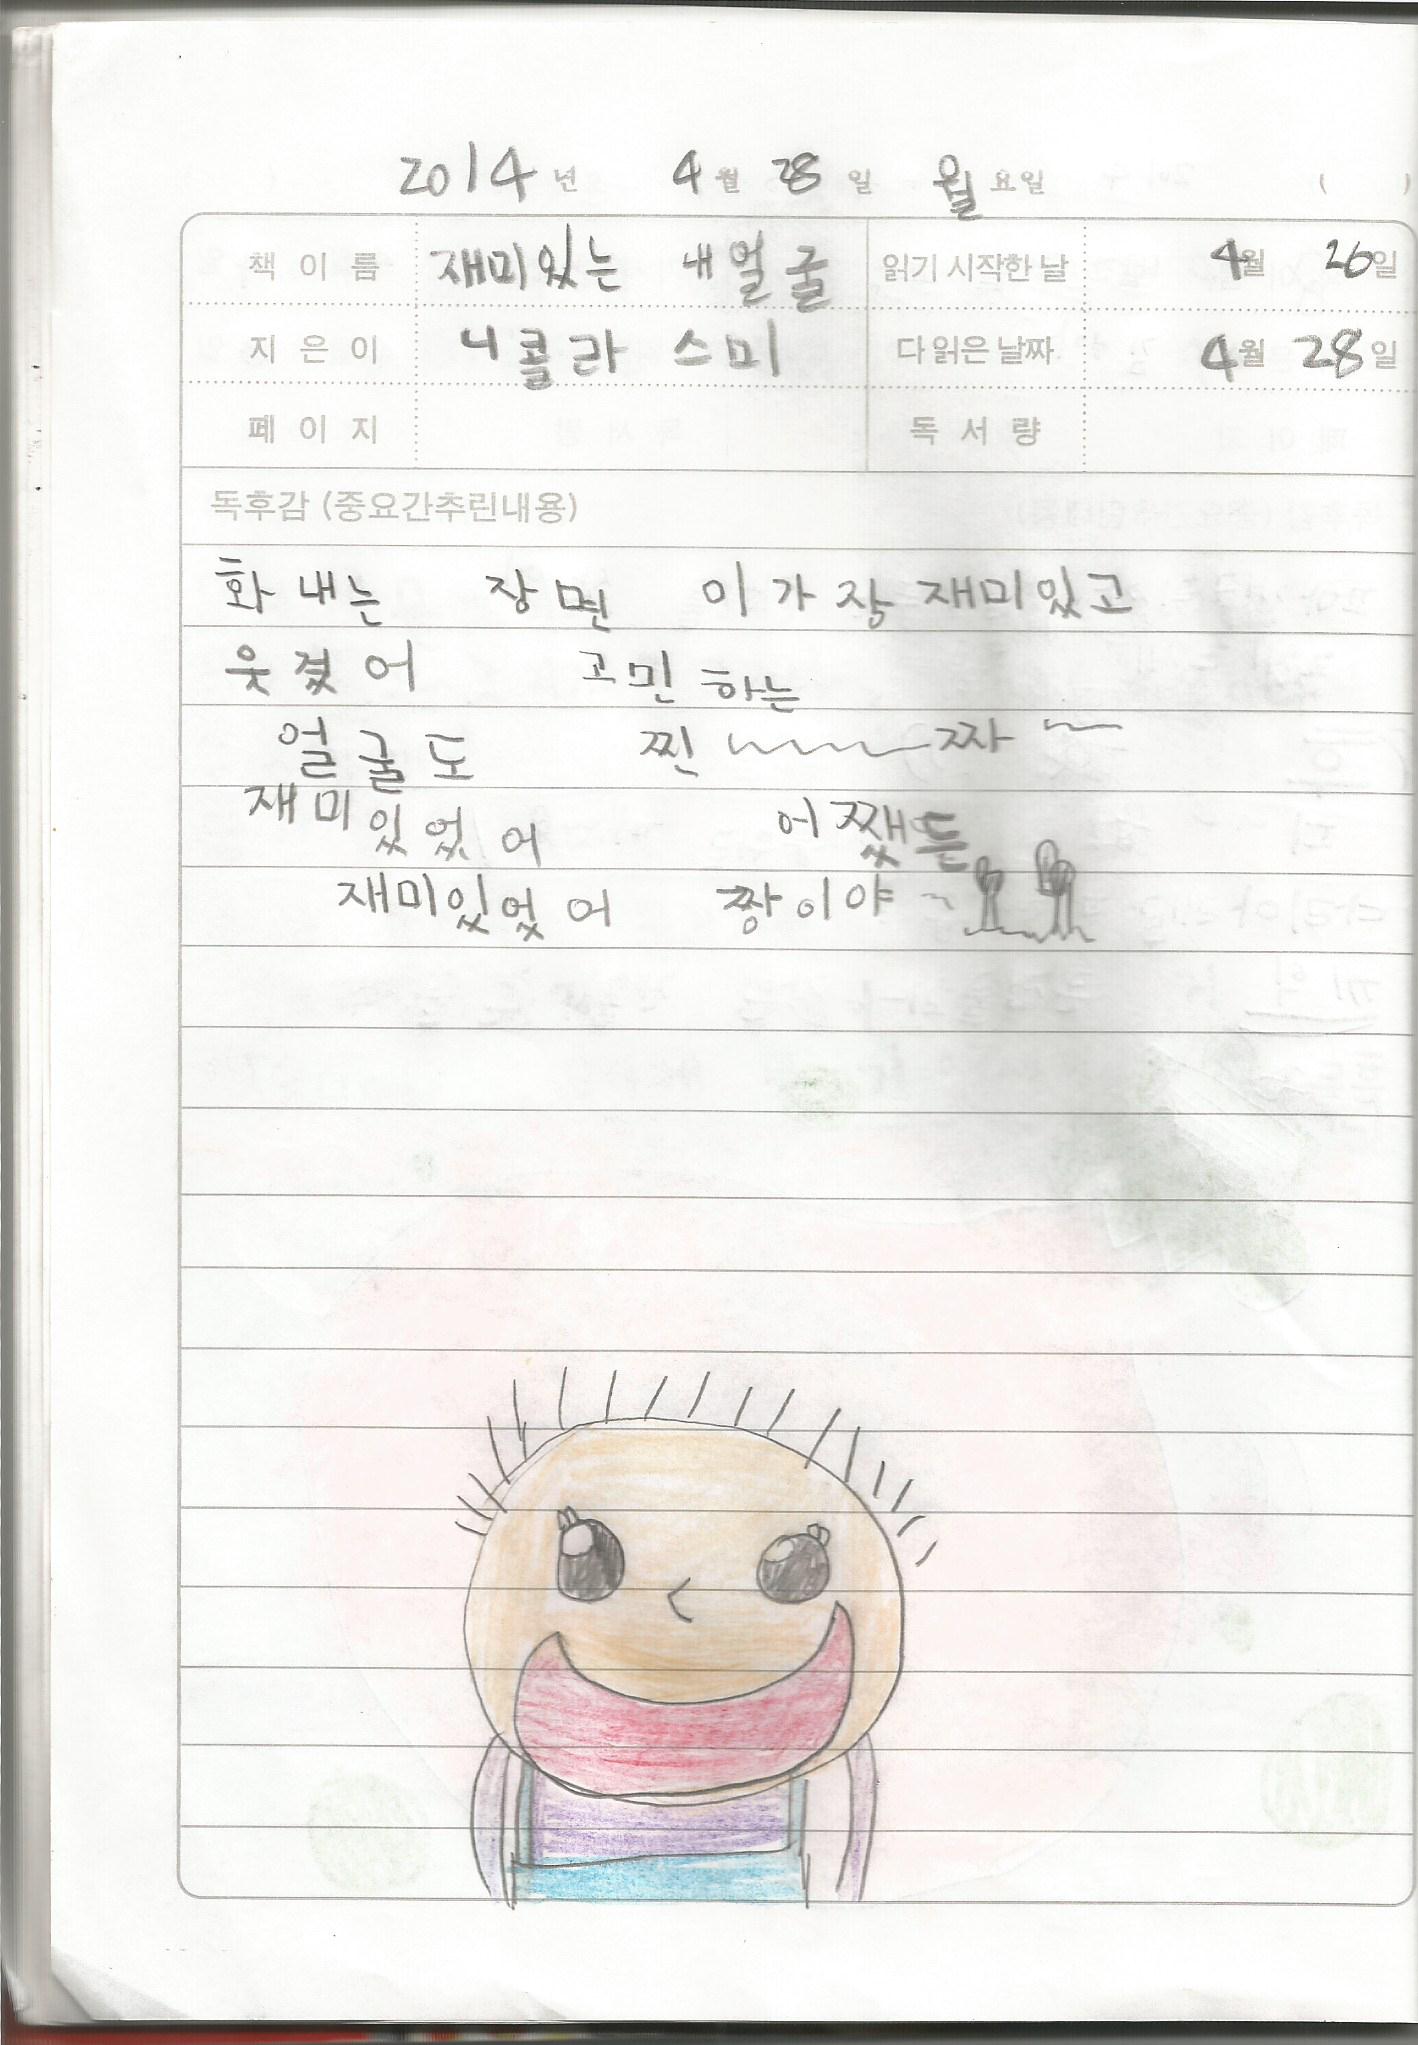 2014년 4월 28일 월요일 ( )
책 이 름 재미있는 내얼굴 읽기 시작한 날 4월 26일
지 은 이 니콜라 스미 다 읽은 날짜 4월 28일
페 이 지 독 서 량
독후감 (중요간추린내용)
화 내는 장면 이 가 장 재미있고
웃겼어 고민하는
얼굴도 찐~~~~짜~
재미있었어 어쨌든
재미있었어 짱이야~